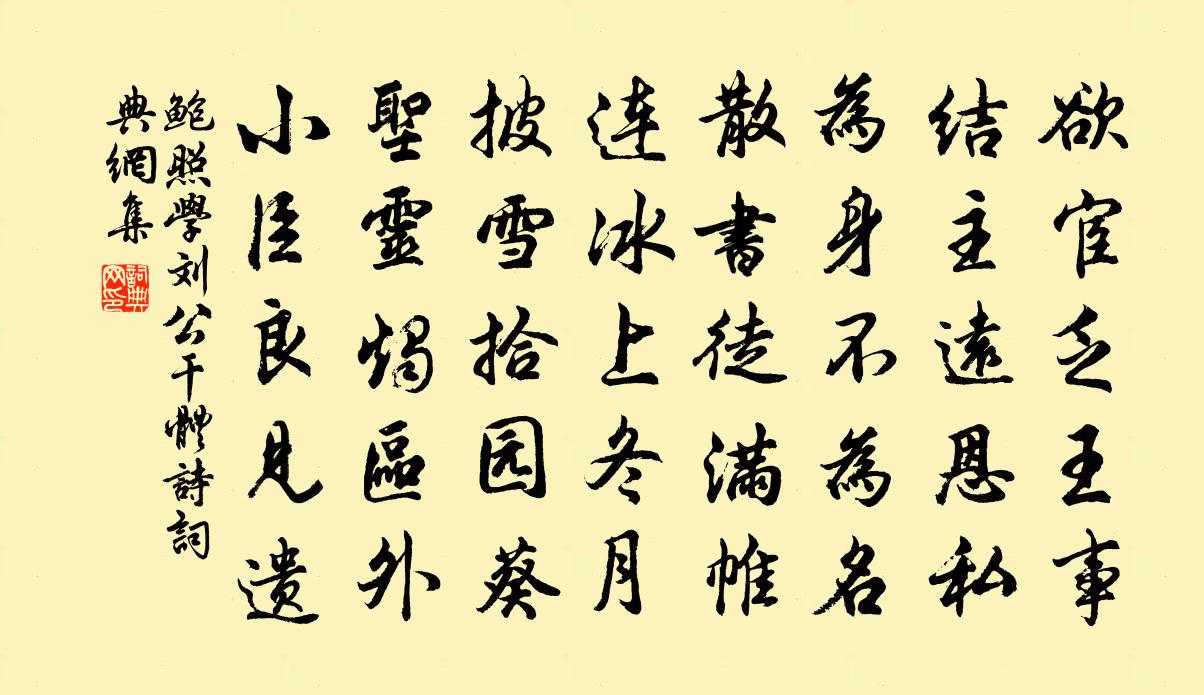 欲宦乏王事
結主遠恩私
為身不為名
散書徒滿帷
連冰上冬月
披雪拾园葵
聖靈燭區外
小臣良見遗
鲍照學刘公干體詩詞
典網集
詞典
网印